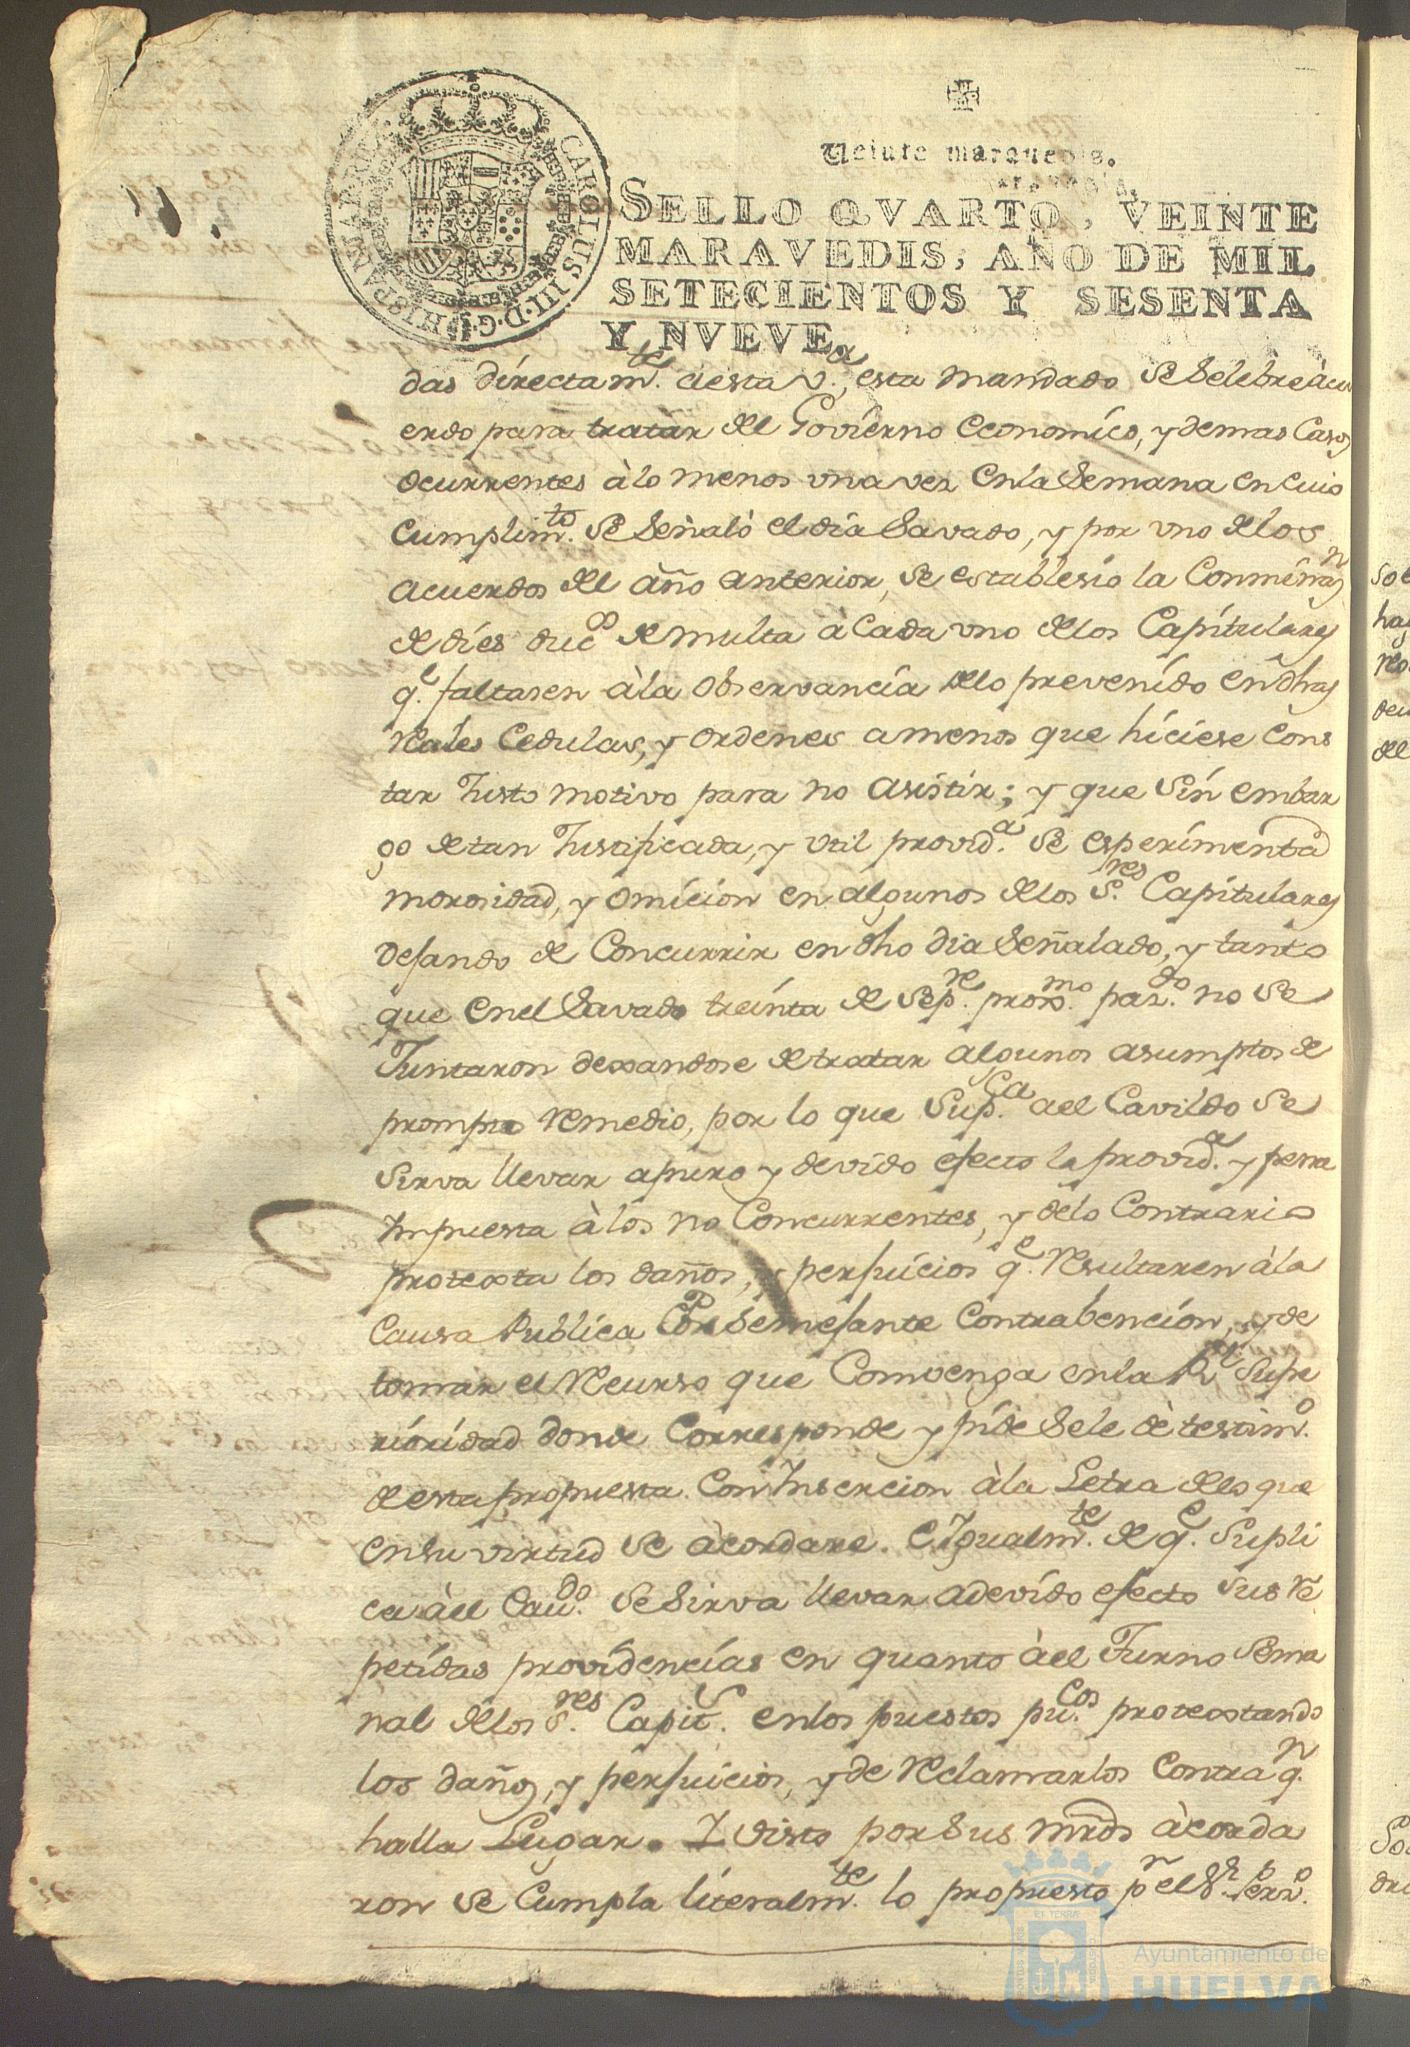 Veinte maravedis.
SELLO QVARTO, VEINTE
MARAVEDIS, AÑO DE MIL
SETECIENTOS Y SESENTA
Y NVEVE.
CAROLUS III D.G. HISPANIAR. REX
das directamte. aesta va. esta mandado se Selebre àcu
erdo para tratar del Govierno economico, y demas Casos
ocurrentes à lo menos vna vez enla Semana en cuio
Cumplimto. se señalò el dia Savado, y por vno delos
acuerdos del año anterior, se establesio la Conminazn
de dies ducos de multa à Cada vno delos Capitulares
qe. faltasen à la observancia delo prevenido en dhas
Reales Cedulas, y ordenes a menos que hiciese Cons
tar Justo motivo para no asistir; y que sin embar
go de tan Justificada, y vtil provida. se esperimenta
morosidad, y omicion en algunos delos Sres. Capitulares
dejando de Concurrir en dho dia señalado, y tanto
que enel Savado treinta de Sepre. proxmo. pazdo. no se
Juntaron dexandose de tratar algunos asumptos de
prompto remedio, por lo que Supca. ael Cavildo se
sirva llevar a puro y devido efecto la provida. y pena
Impuesta à los no Concurrentes, y delo Contrario
protexta los daños, y perjuicios qe. resultaren àla
Causa Publica Por Semejante Contrabencion, y de
tomar el recurso que Convenga enla Rl. Supe
rioridad donde Corresponde y pide Sele dè testimo.
de esta propuesta Con Insercion àla Letra delo que
ensu virtud se àcordare. E Igualmte. de qe. Supli
ca àel Cavdo. se Sirva llevar adevido efecto sus re
petidas providencias en quanto àel Turno sema
nal delos Sres. Capits. enlos puestos pucos. protextando
los daños, y perjuicios, y de reclamarlos Contra qn.
halla Lugar. Y visto por sus mrds àcorda
ron se Cumpla literalmte. lo propuesto pr. el Sr.
Ayuntamiento de
HUELVA